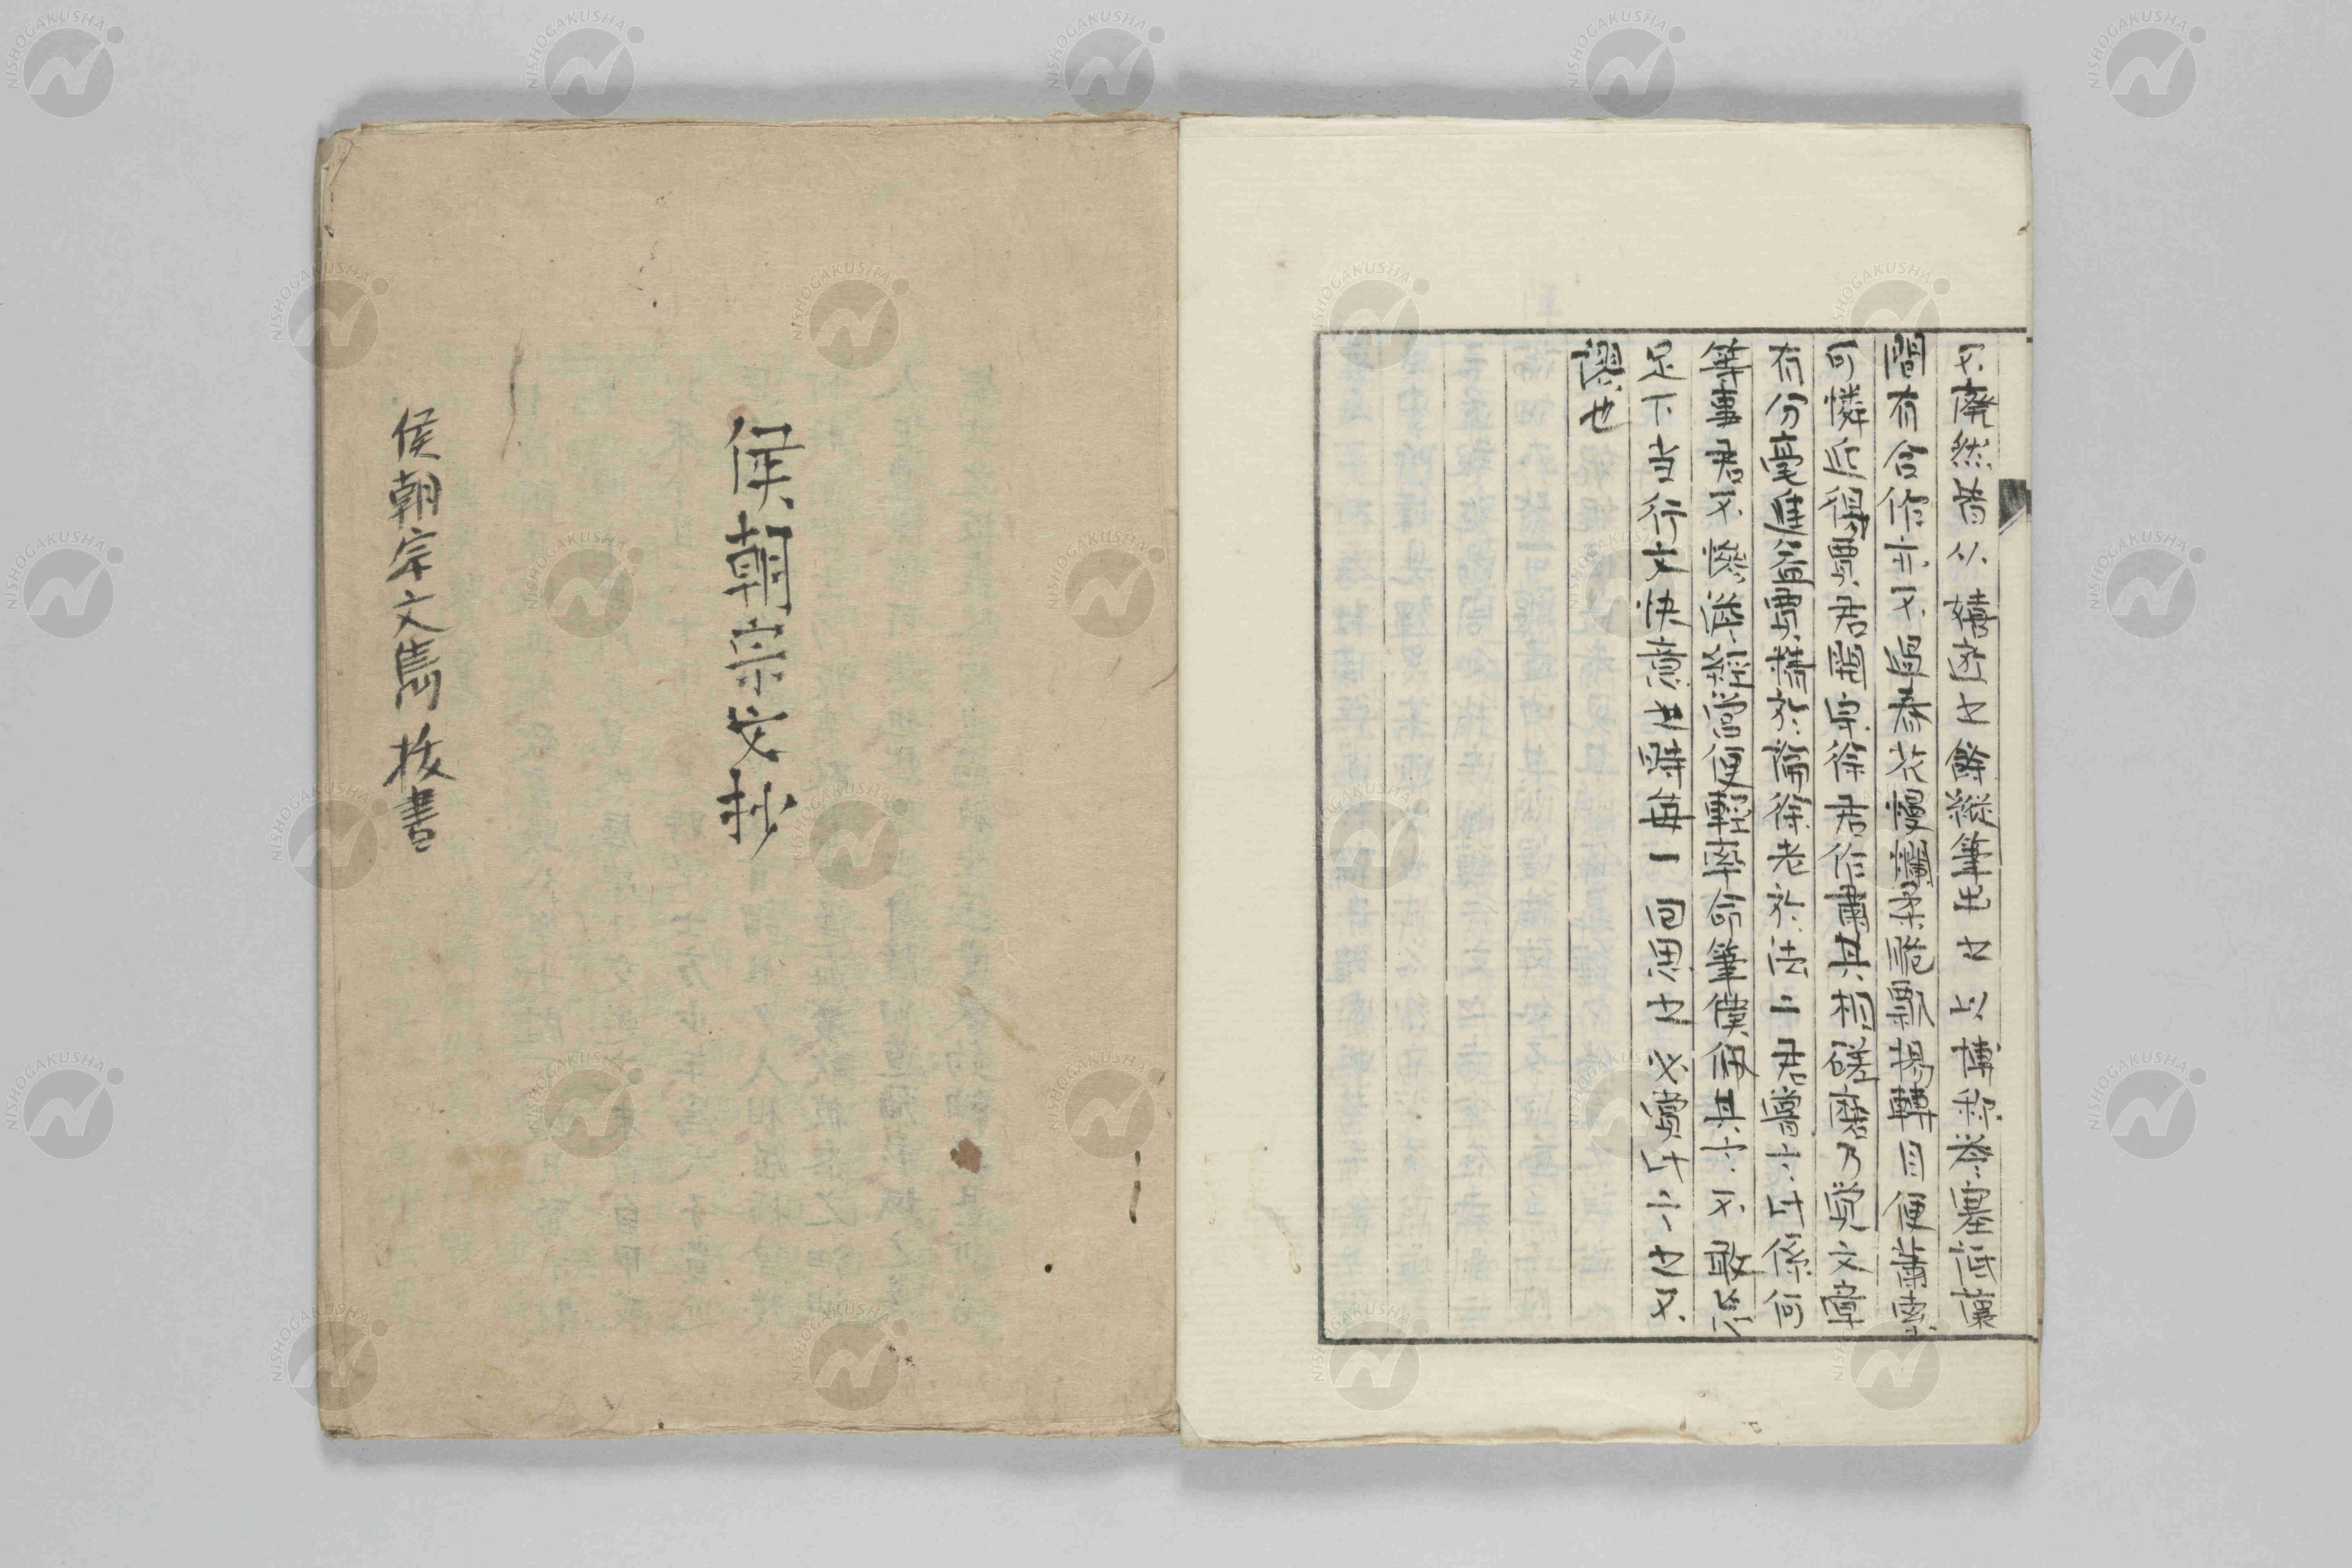 不廃然皆以嬉遊之餘縦筆出之以博称誉塞詆讓
間有合作亦不過春花爛熳柔脆飄揚轉目便蕭索
可憐近得賈君開宗徐君作肅共相磋磨乃覚文章
有分毫進益賈精於論徐老於法二君嘗言此係何
等事君不慘淡經営便輕率命筆僕佩其言不敢忘
足下当行文快意之時每一回思之必賞此言之不
謬也
侯朝宗文抄
侯朝宗文雋抜書
NISHOGAKUSHA